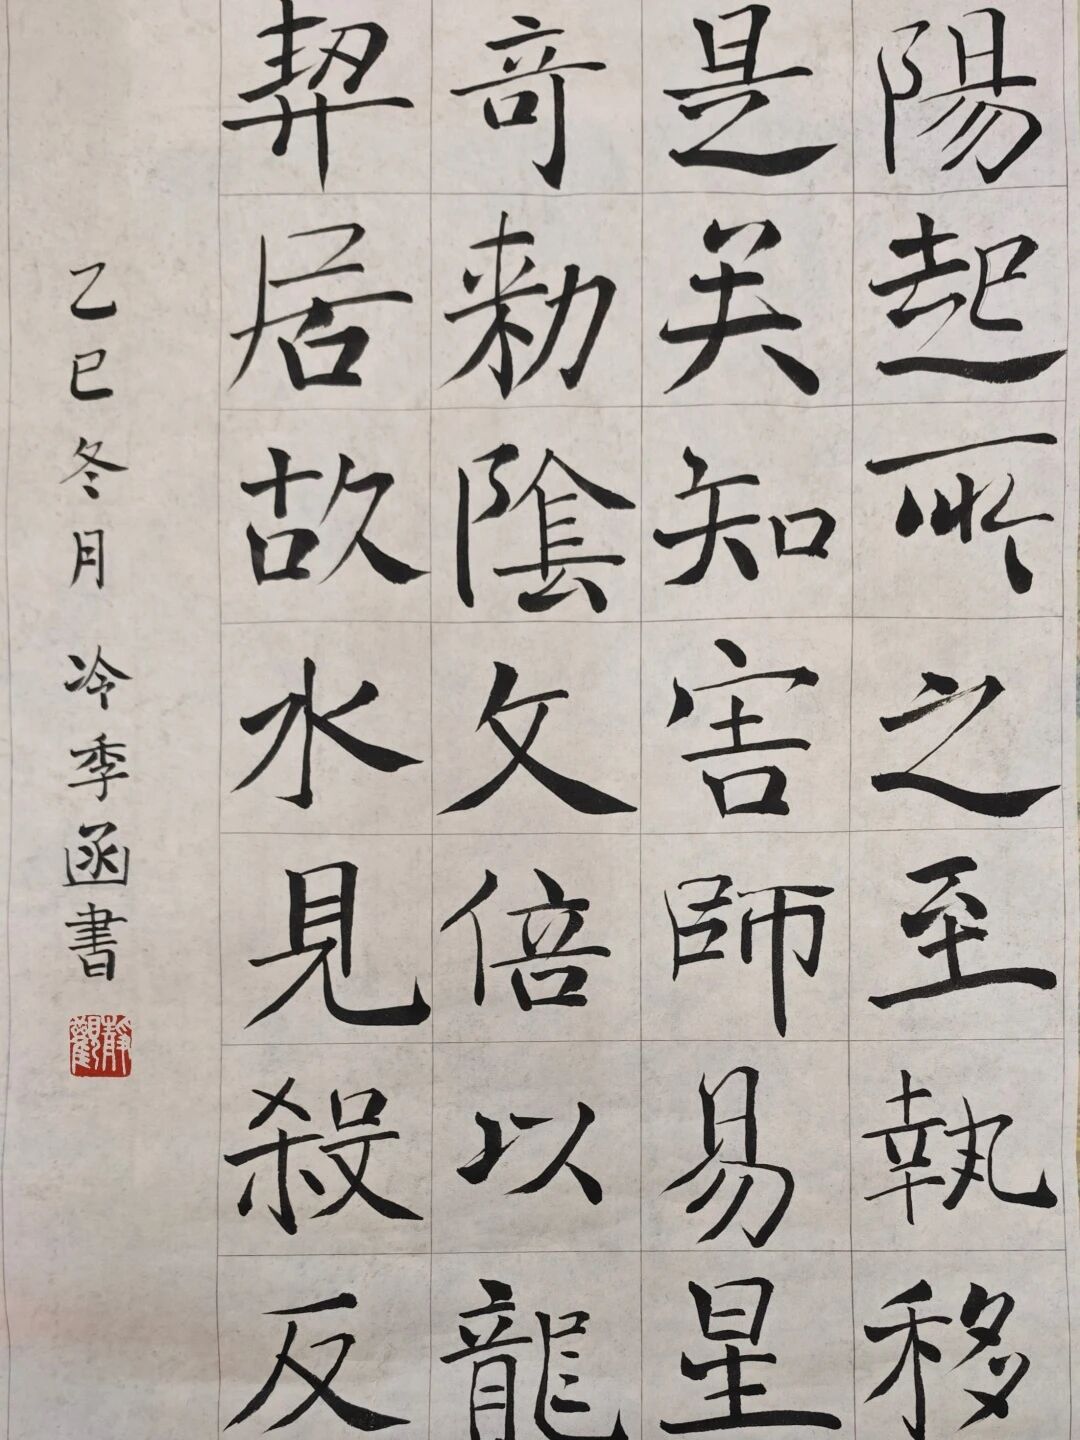 陽起所之至執移
是关知害師易星
奇勑陰文倍以龍
契居故水見殺反
乙巳冬月 冷季函書
靜觀